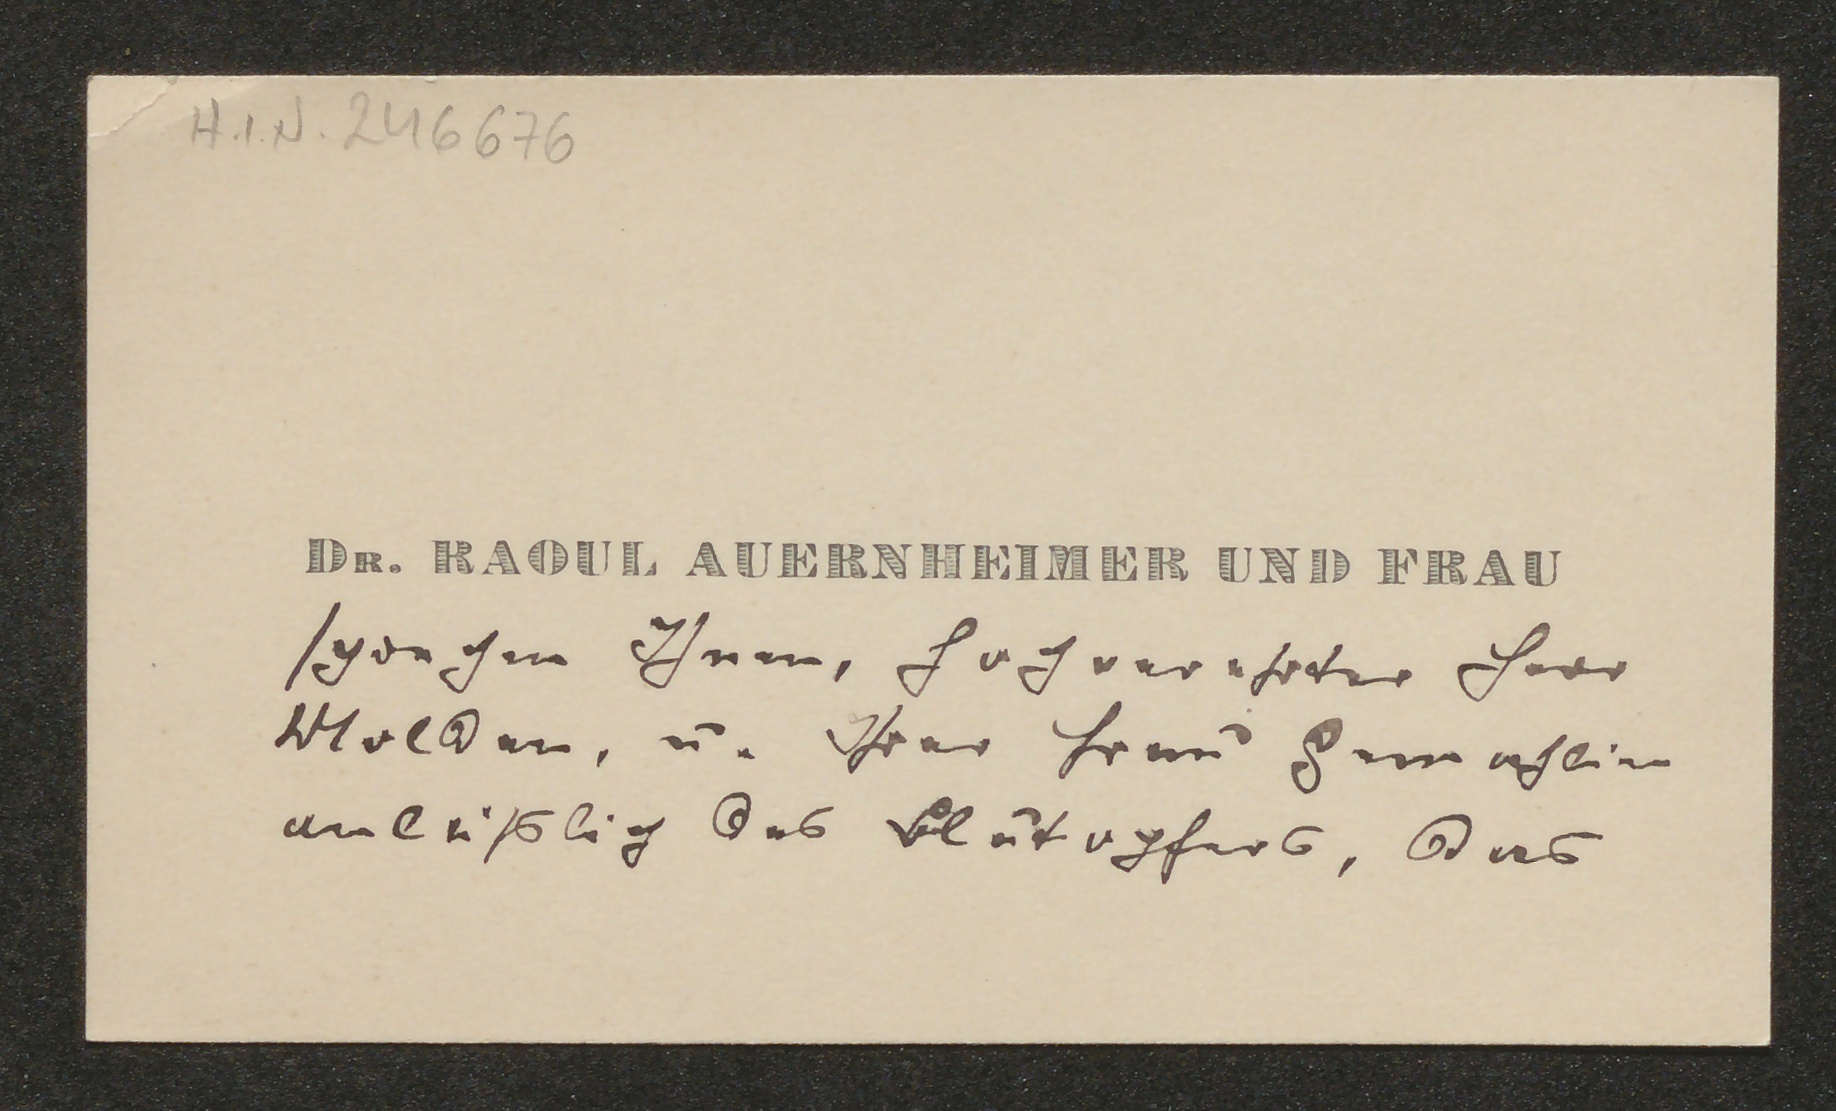 H.I.N. 246676
DR. RAOUL AUERNHEIMER UND FRAU
sprechen Ihnen, hochverehrter Herr
Molden, u. Ihrer Frau Gemahlin
anläßlich des Blutopfers, das